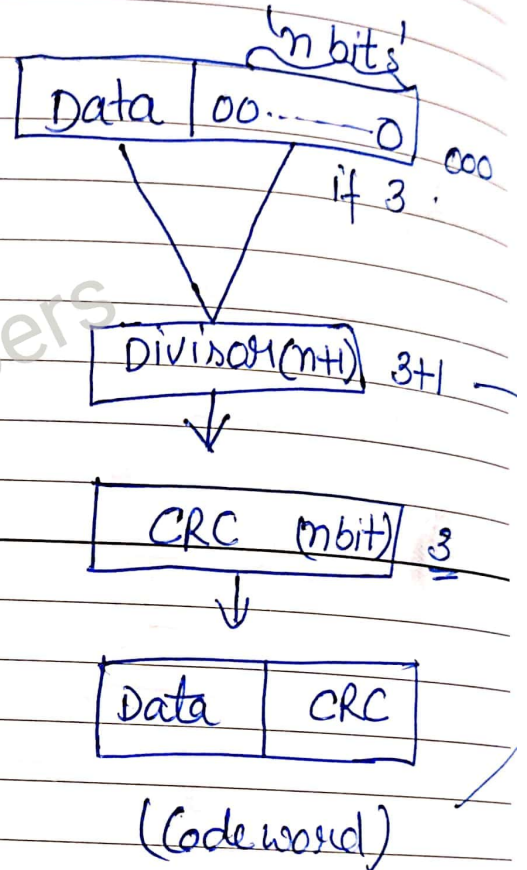 'n bits'
Data 00.......0 000
if 3.
ers
Divisor(n+1) 3+1 —
CRC (nbit) 3
Data CRC
(Codeword)